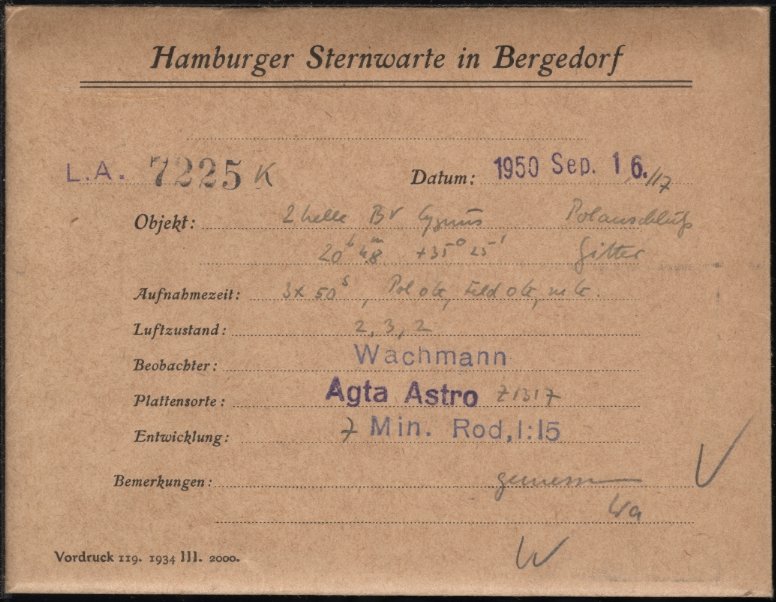 Hamburger Sternwarte in Bergedorf
L.A. 7225 K Datum: 1950 Sep. 16./17
Objekt: 2 helle BV Cygnus Polanschluß
20ʰ 48ᵐ +35° 25' Gitter
Aufnahmezeit: 3x 50ˢ, Pol ote, Feld ote, ute.
Luftzustand: 2, 3, 2
Beobachter: Wachmann
Plattensorte: Agfa Astro Z1317
Entwicklung: 7 Min. Rod, 1:15
Bemerkungen: gemessen
Wa
W
Vordruck 119. 1934 III. 2000.